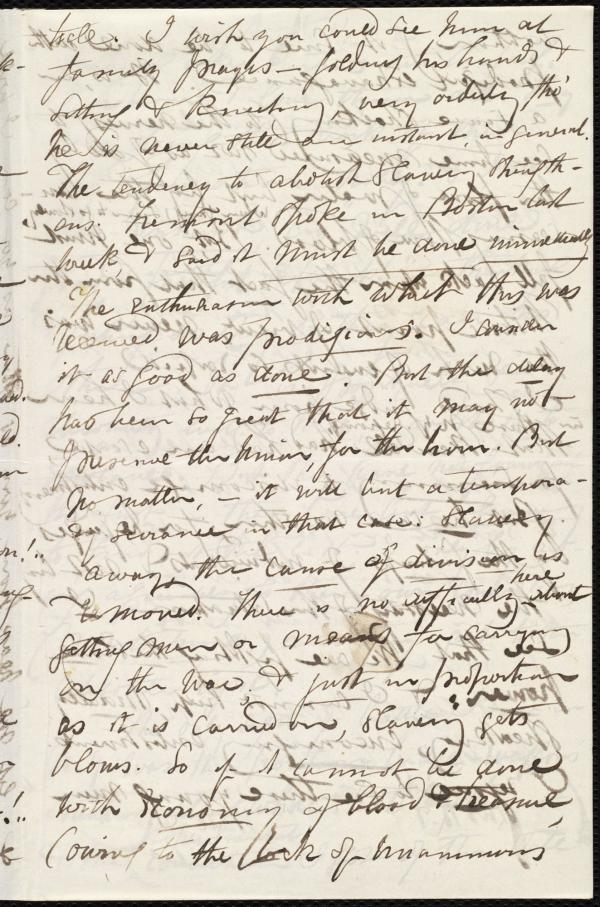 title. I wish you could see him at
family prayers — folding his hands &
sitting & kneeling, very orderly, tho'
he is never still an instant, in general.
The tendency to abolish Slavery strength-
ens. Fremont spoke in Boston last
week, & said it must be done immediately
The enthusiasm with which this was
received was prodigious. I consider
it as good as done. But the delay
has been so great that it may not
preserve the Union, for the hour. But
no matter, — it will but a tempora-
ry severance in that case: Slavery
away, the cause of division is
removed. There is no difficulty here about
getting men or means for carrying
on the war; & just in proportion
as it is carried on, Slavery gets
blows. So if it cannot be done
with economy of blood & treasure,
(owing to the lack of unanimous